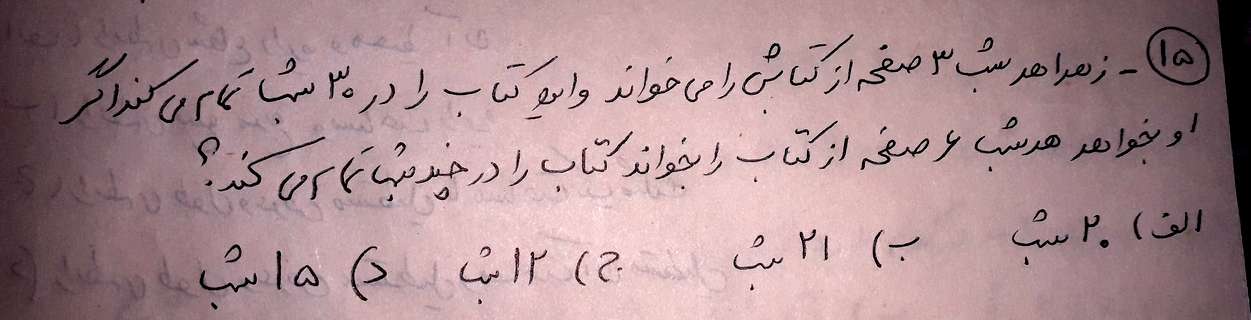 ۱۵- زهرا هر شب ۳ صفحه از کتابش را می خواند و این کتاب را در ۳۰ شب تمام می کند اگر
او بخواهد هر شب ۶ صفحه از کتاب را بخواند کتاب را در چند شب تمام می کند؟
الف) ۲۰ شب ب) ۲۱ شب ج) ۱۲ شب د) ۱۵ شب